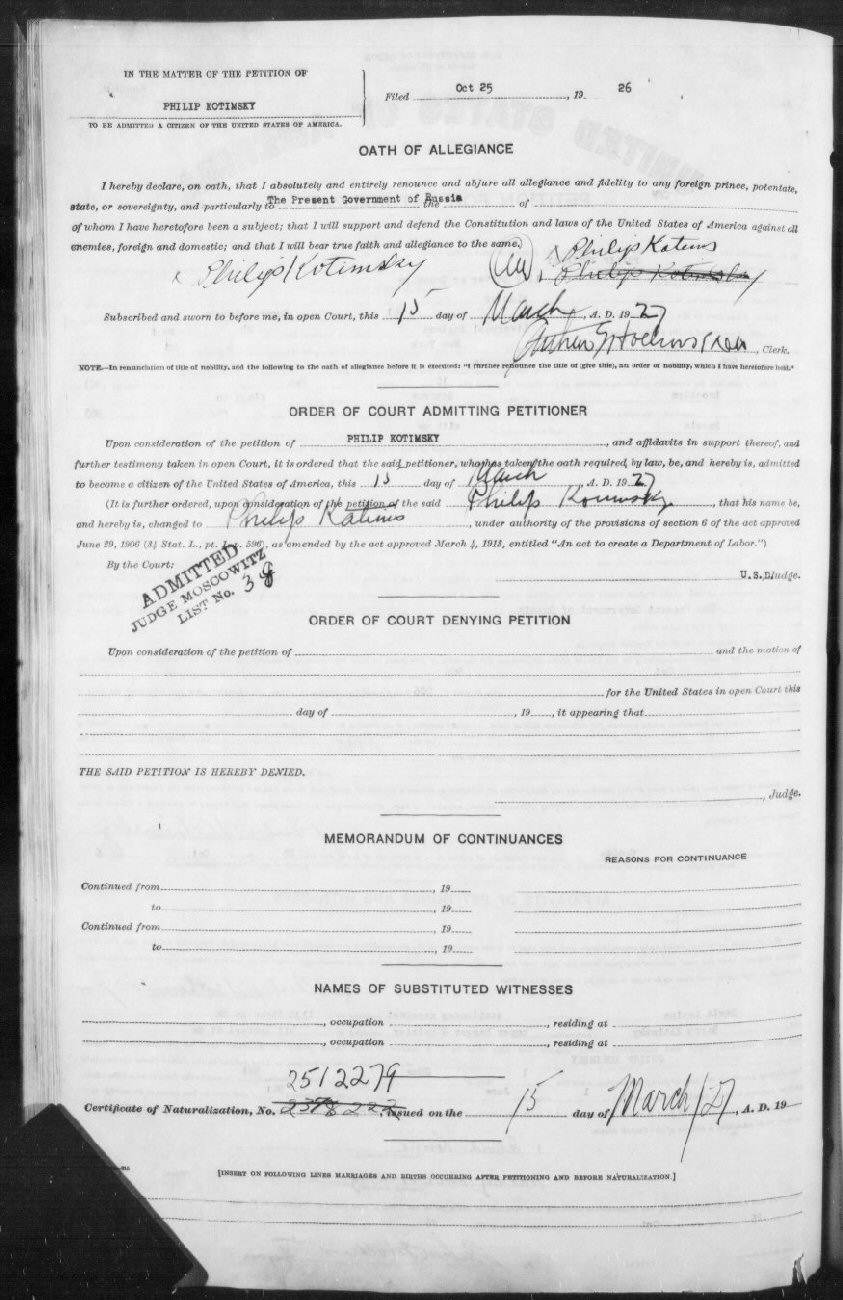 IN THE MATTER OF THE PETITION OF
PHILIP KOTIMSKY
TO BE ADMITTED A CITIZEN OF THE UNITED STATES OF AMERICA.
Filed Oct 25, 19 26
OATH OF ALLEGIANCE
I hereby declare, on oath, that I absolutely and entirely renounce and abjure all allegiance and fidelity to any foreign prince, potentate,
state, or sovereignty, and particularly to The Present Government of Russia the of
of whom I have heretofore been a subject; that I will support and defend the Constitution and laws of the United States of America against all
enemies, foreign and domestic; and that I will bear true faith and allegiance to the same.
x Philip Katims
x Philip Kotimsky Philip Kotimsky
Subscribed and sworn to before me, in open Court, this 15 day of March, A. D. 19 27
, Clerk.
NOTE.—In renunciation of title of nobility, add the following to the oath of allegiance before it is executed: "I further renounce the title of (give title), an order of nobility, which I have heretofore held."
ORDER OF COURT ADMITTING PETITIONER
Upon consideration of the petition of PHILIP KOTIMSKY, and affidavits in support thereof, and
further testimony taken in open Court, it is ordered that the said petitioner, who has taken the oath required by law, be, and hereby is, admitted
to become a citizen of the United States of America, this 15 day of March, A. D. 19 27
(It is further ordered, upon consideration of the petition of the said Philip Kotimsky, that his name be,
and hereby is, changed to Philip Katims, under authority of the provisions of section 6 of the act approved
June 29, 1906 (34 Stat. L., pt. 1, p. 596), as amended by the act approved March 4, 1913, entitled "An act to create a Department of Labor.")
By the Court:
ADMITTED
JUDGE MOSCOWITZ
LIST No. 38
U.S.D. Judge.
ORDER OF COURT DENYING PETITION
Upon consideration of the petition of and the motion of
for the United States in open Court this
day of , 19 , it appearing that
THE SAID PETITION IS HEREBY DENIED.
, Judge.
MEMORANDUM OF CONTINUANCES
REASONS FOR CONTINUANCE
Continued from , 19
to , 19
Continued from , 19
to , 19
NAMES OF SUBSTITUTED WITNESSES
, occupation , residing at
, occupation , residing at
2512279
Certificate of Naturalization, No. , issued on the 15 day of March/27, A. D. 19
[INSERT ON FOLLOWING LINES MARRIAGES AND BIRTHS OCCURRING AFTER PETITIONING AND BEFORE NATURALIZATION.]